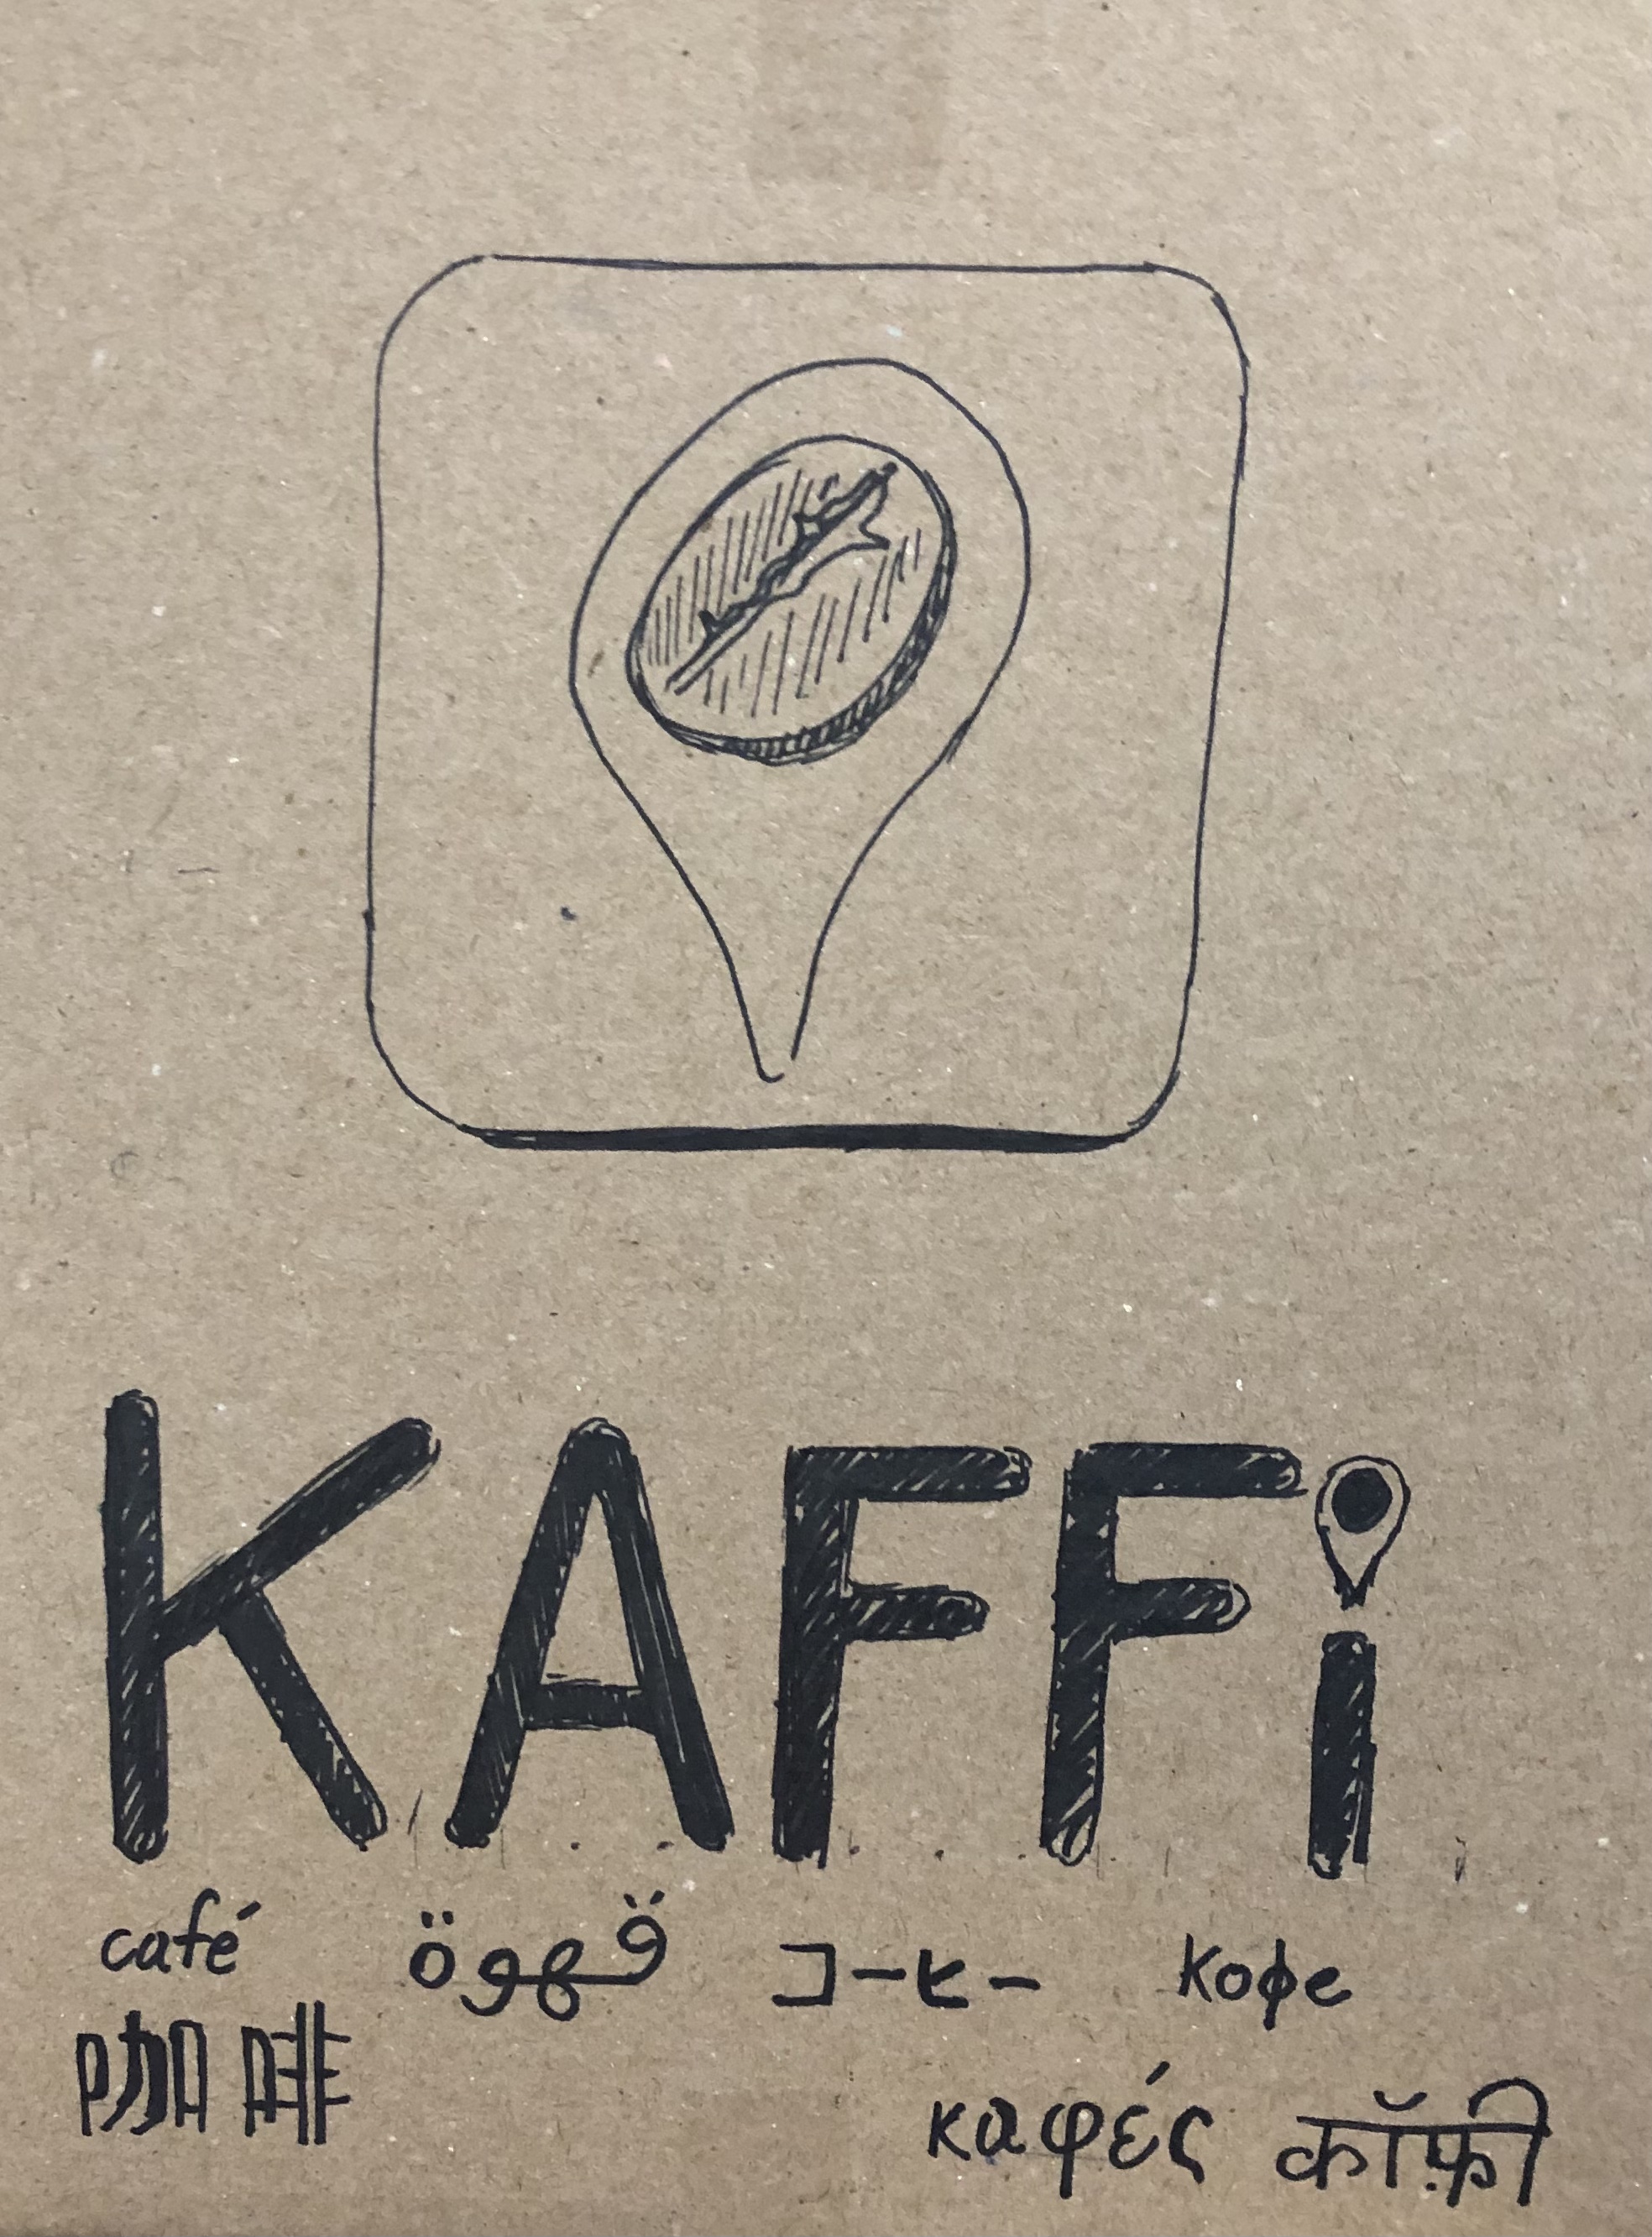 KAFFi
café قهوة コーヒー кофе
咖啡
καφές कॉफ़ी